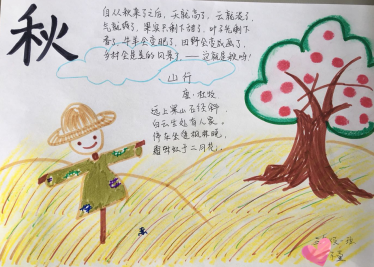 秋
自从秋来了之后,天就高了,云就淡了,
气就爽了,果实只剩下甜了,叶子只剩下
香了,牛羊会变肥了,田野会变成画了,
乡村会是美的风景了,——这就是秋呀!
山行
唐·杜牧
远上寒山石径斜,
白云生处有人家。
停车坐爱枫林晚,
霜叶红于二月花。